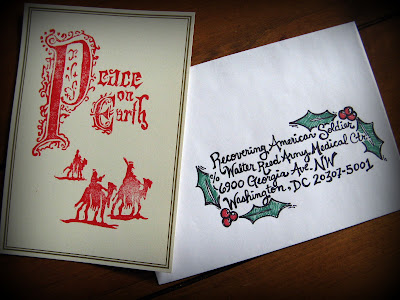 Peace
on
Earth
Recovering American Soldier
℅ Walter Reed Army Medical Ctr.
6900 Georgia Ave. NW
Washington, DC 20307-5001